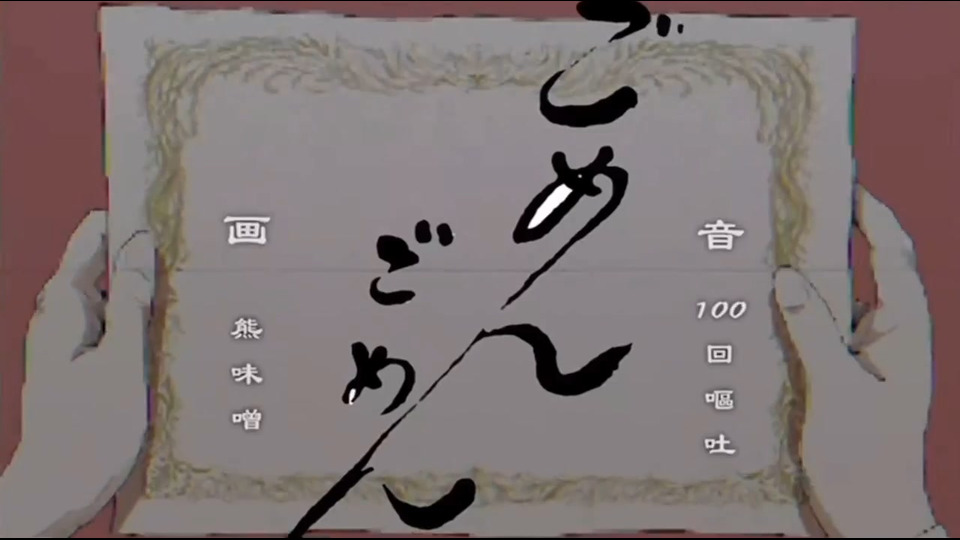 ごめん
ごめん
音
100回嘔吐
画
熊味噌